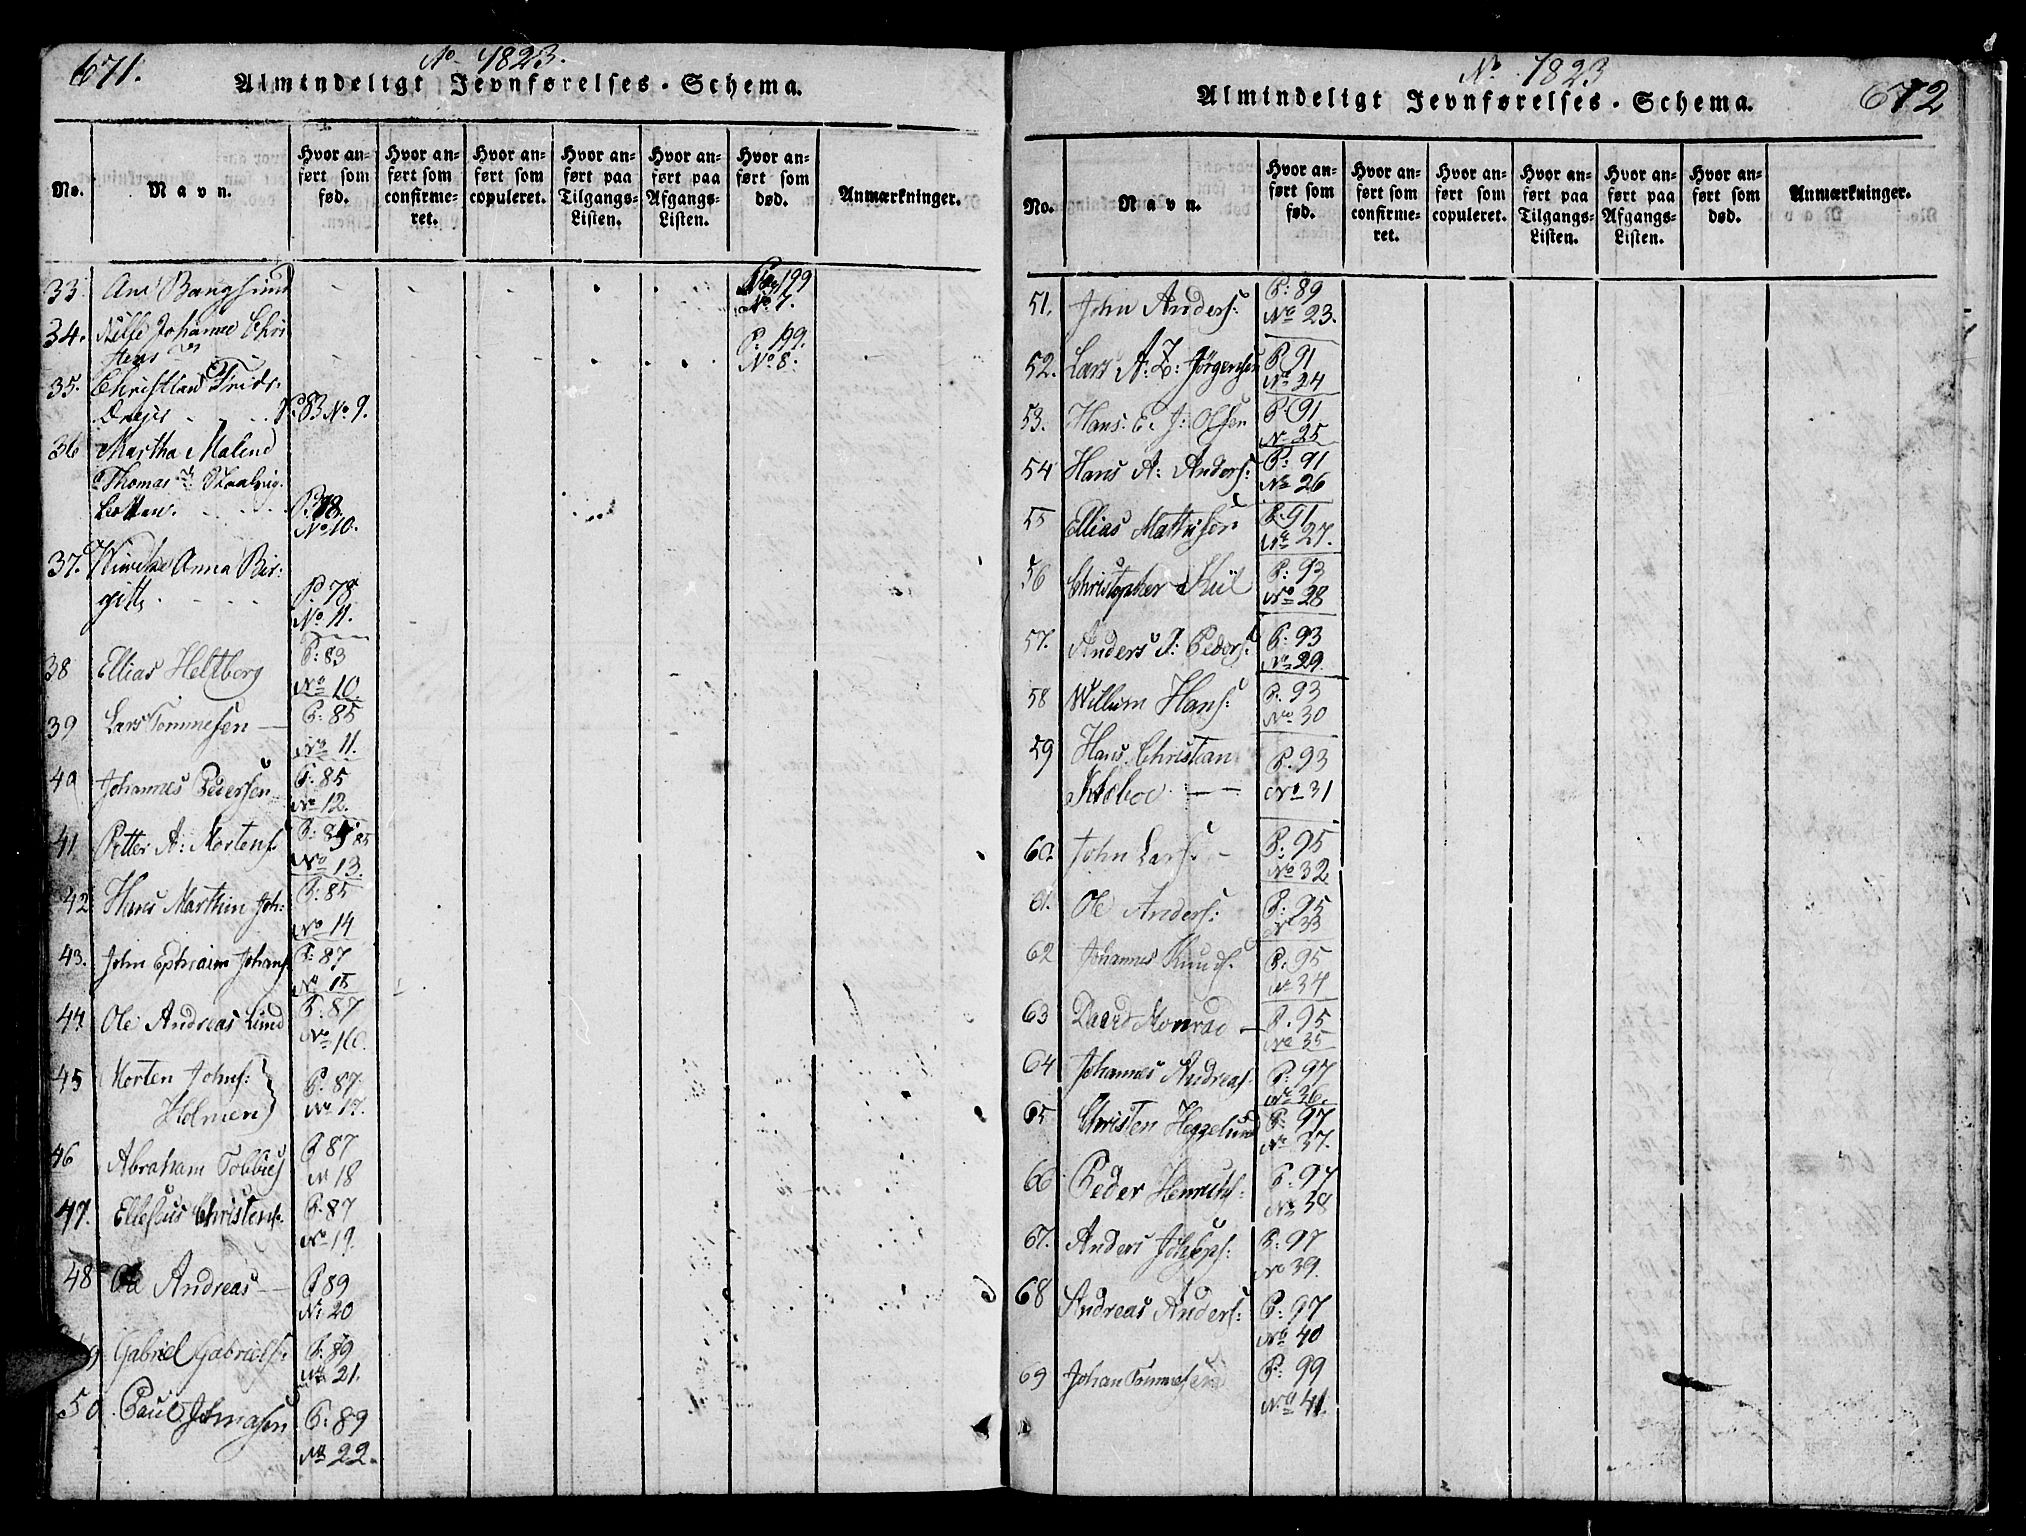 671.
No 1823.
Almindeligt Jevnførelses-Schema.
No.
Navn.
Hvor anført som fød.
Hvor anført som confirmeret.
Hvor anført som copuleret.
Hvor anført paa Tilgangs-Listen.
Hvor anført paa Afgangs-Listen.
Hvor anført som død.
Anmærkninger.
33. Ane Bangsund Pag 199
No 7.
34. Nille Johanne Chri
stens P: 199.
No 8.
35. Christian Fridr:
Drejer P. 83 No 9.
36 Martha Malene
Thomas
No 10.
37. Anna Bir:
gitte P. 79
No 11.
38 Ellias Heltberg P: 83
No 10.
39 Lars Tommesen P: 85
No 11.
40 Johannes Pedersen P: 85
No 12.
41 Petter A: Mortens. P: 85
No 13.
42 Hans Marthin Joh: P: 85
No 14
43. John Ephraim Johans. P: 87
No 15
44 Ole Andreas Lund P: 87
No 16.
45 Morten Johns: P: 87
Holmen No 17.
46 Abraham Tobbies P 87
No 18
47. Ellesius Christens. P: 87
No 19.
48 Ole Andreas P 89
No 20
Gabriel Gabriels: P: 89
No 21.
50 Paul Johnasen P: 89
No 22.
No 1823
672
Almindeligt Jevnførelses-Schema.
No.
Navn.
Hvor anført som fød.
Hvor anført som confirmeret.
Hvor anført som copuleret.
Hvor anført paa Tilgangs-Listen.
Hvor anført paa Afgangs-Listen.
Hvor anført som død.
Anmærkninger.
51. John Anders: P: 89
No 23.
52. Lars A: Z: Jörgensen P. 91
No 24
53. Hans: E. J: Olsen P. 91
No 25
54 Hans A: Anders: P: 91
No 26
55 Ellias Mathisen P. 91
No 27.
56 Christopher P: 93
No 28
57. Anders J: Peders: P: 93
No 29.
58 Willum Hans: P. 93
No 30
59 Hans Christan P. 93
No 31
60. John Lars: P: 95
No 32
61. Ole Anders: P: 95
No 33
62 Johannes Knuds: P: 95
No 34
63 David Monrad P. 95
No 35
64 Johannes Andreas: P: 97
No 36.
65 Christen Heggelund P: 97
No 37.
66 Peder Henrichs: P: 97
No 38
67. Anders Josephs: P: 97
No 39.
68 Andreas Anders: P: 97
No 40
69 Johan Tommesen P: 99
No 41.